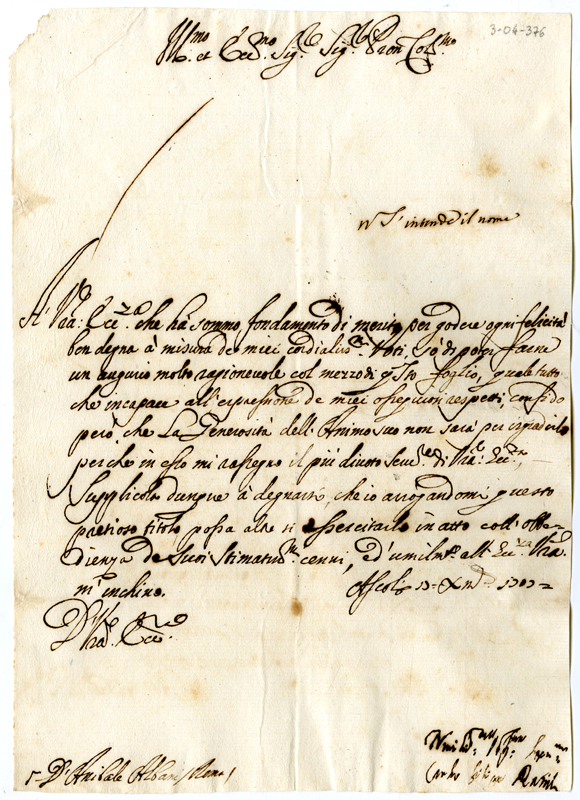 3-04-376
Ill.mo et Ecc.mo Sig.re Sig.re Pron Col.mo
N S'intende il nome
A' V'ra: Ecc.za che hà sommo fondamento di merito per godere ogni felicità
ben degna à misura de miei cordialiss.mi Voti, sò di poter farne
un augurio molto ragioneuole col mezzo di q'sto foglio, quale tutto
che incapace all'espressione de miei ossequiosi respetti, confido
però che La Generosità dell'Animo suo non sarà per isgradirlo
perche in esso mi rassegno il più diuoto Seru.re di V'ra Ecc.za
Supplicola dunque à degnarsi, che io arrogandomi questo
pretioso titolo possa altresì essercitarlo in atto coll'obbe-
dienza de suoi Stimatiss.mi cenni, ed umilm.te all'Ecc.za V'ra
m'inchino. Ascoli 13 = X mbre 1707 =
D V'ra Ecc.za
D. Anibale Albani / Roma /
Carlo